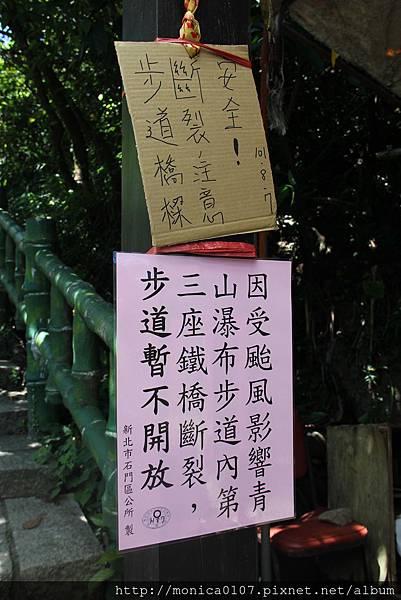 步道橋樑
斷裂,注意
安全!
101.8.7
因受颱風影響青
山瀑布步道內第
三座鐵橋斷裂，
步道暫不開放
新北市石門區公所 製
http://monica0107.pixnet.net/album